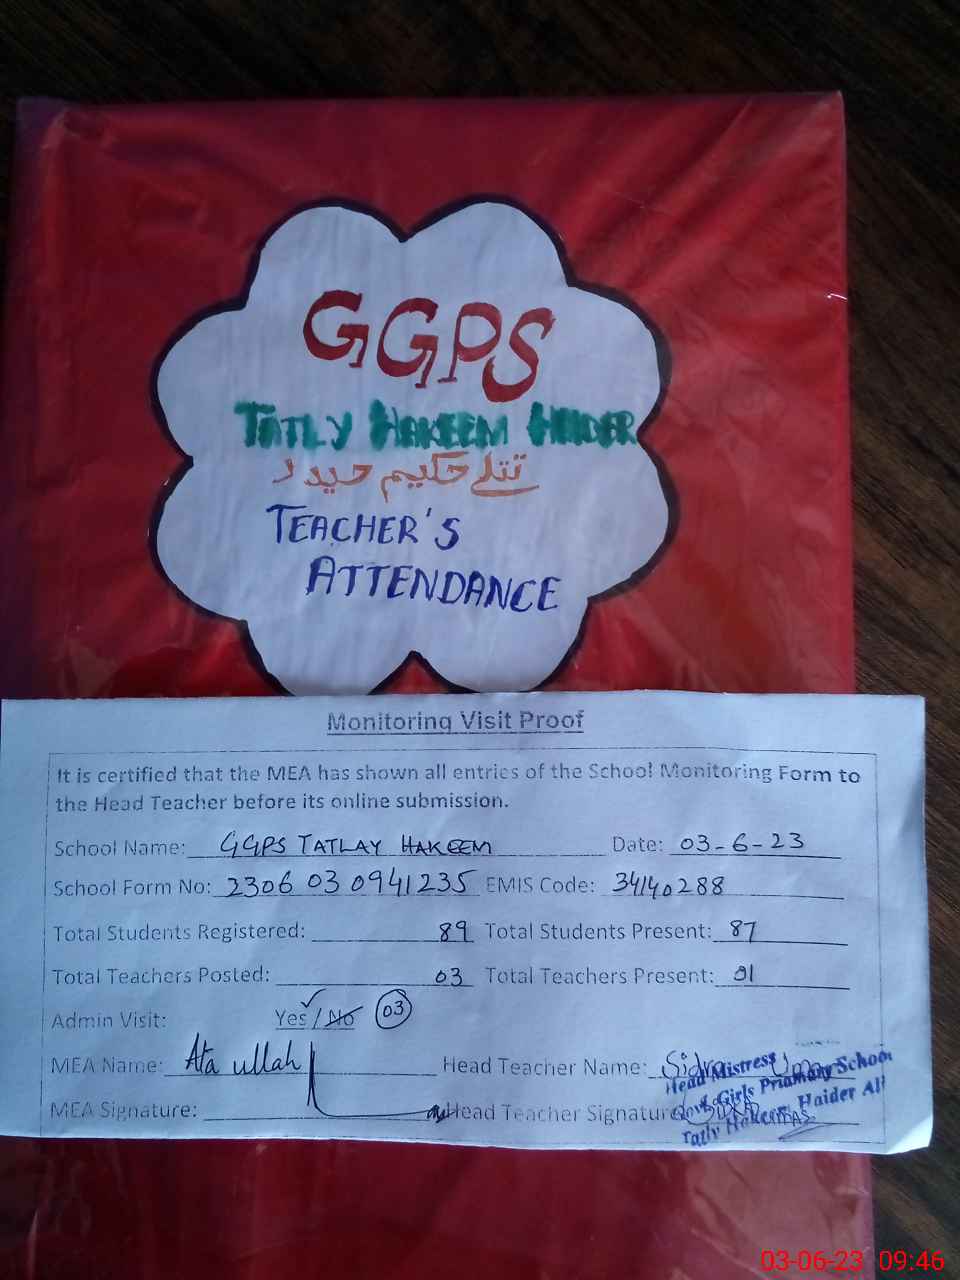 GGPS
TATLY HAKEEM HAIDER
تتلے حکیم حیدر
TEACHER'S
ATTENDANCE
Monitoring Visit Proof
It is certified that the MEA has shown all entries of the School Monitoring Form to
the Head Teacher before its online submission.
School Name: GGPS TATLAY HAKEEM Date: 03-6-23
School Form No: 2306 03 0941235 EMIS Code: 34140288
Total Students Registered: 89 Total Students Present: 87
Total Teachers Posted: 03 Total Teachers Present: 01
Admin Visit: Yes / No 03
MEA Name: Ata ullah Head Teacher Name: Sidra
MEA Signature: Head Teacher Signature
Head Mistress
Govt. Girls Priamary School
Tatly Hakeem Haider Ali
03-06-23 09:46